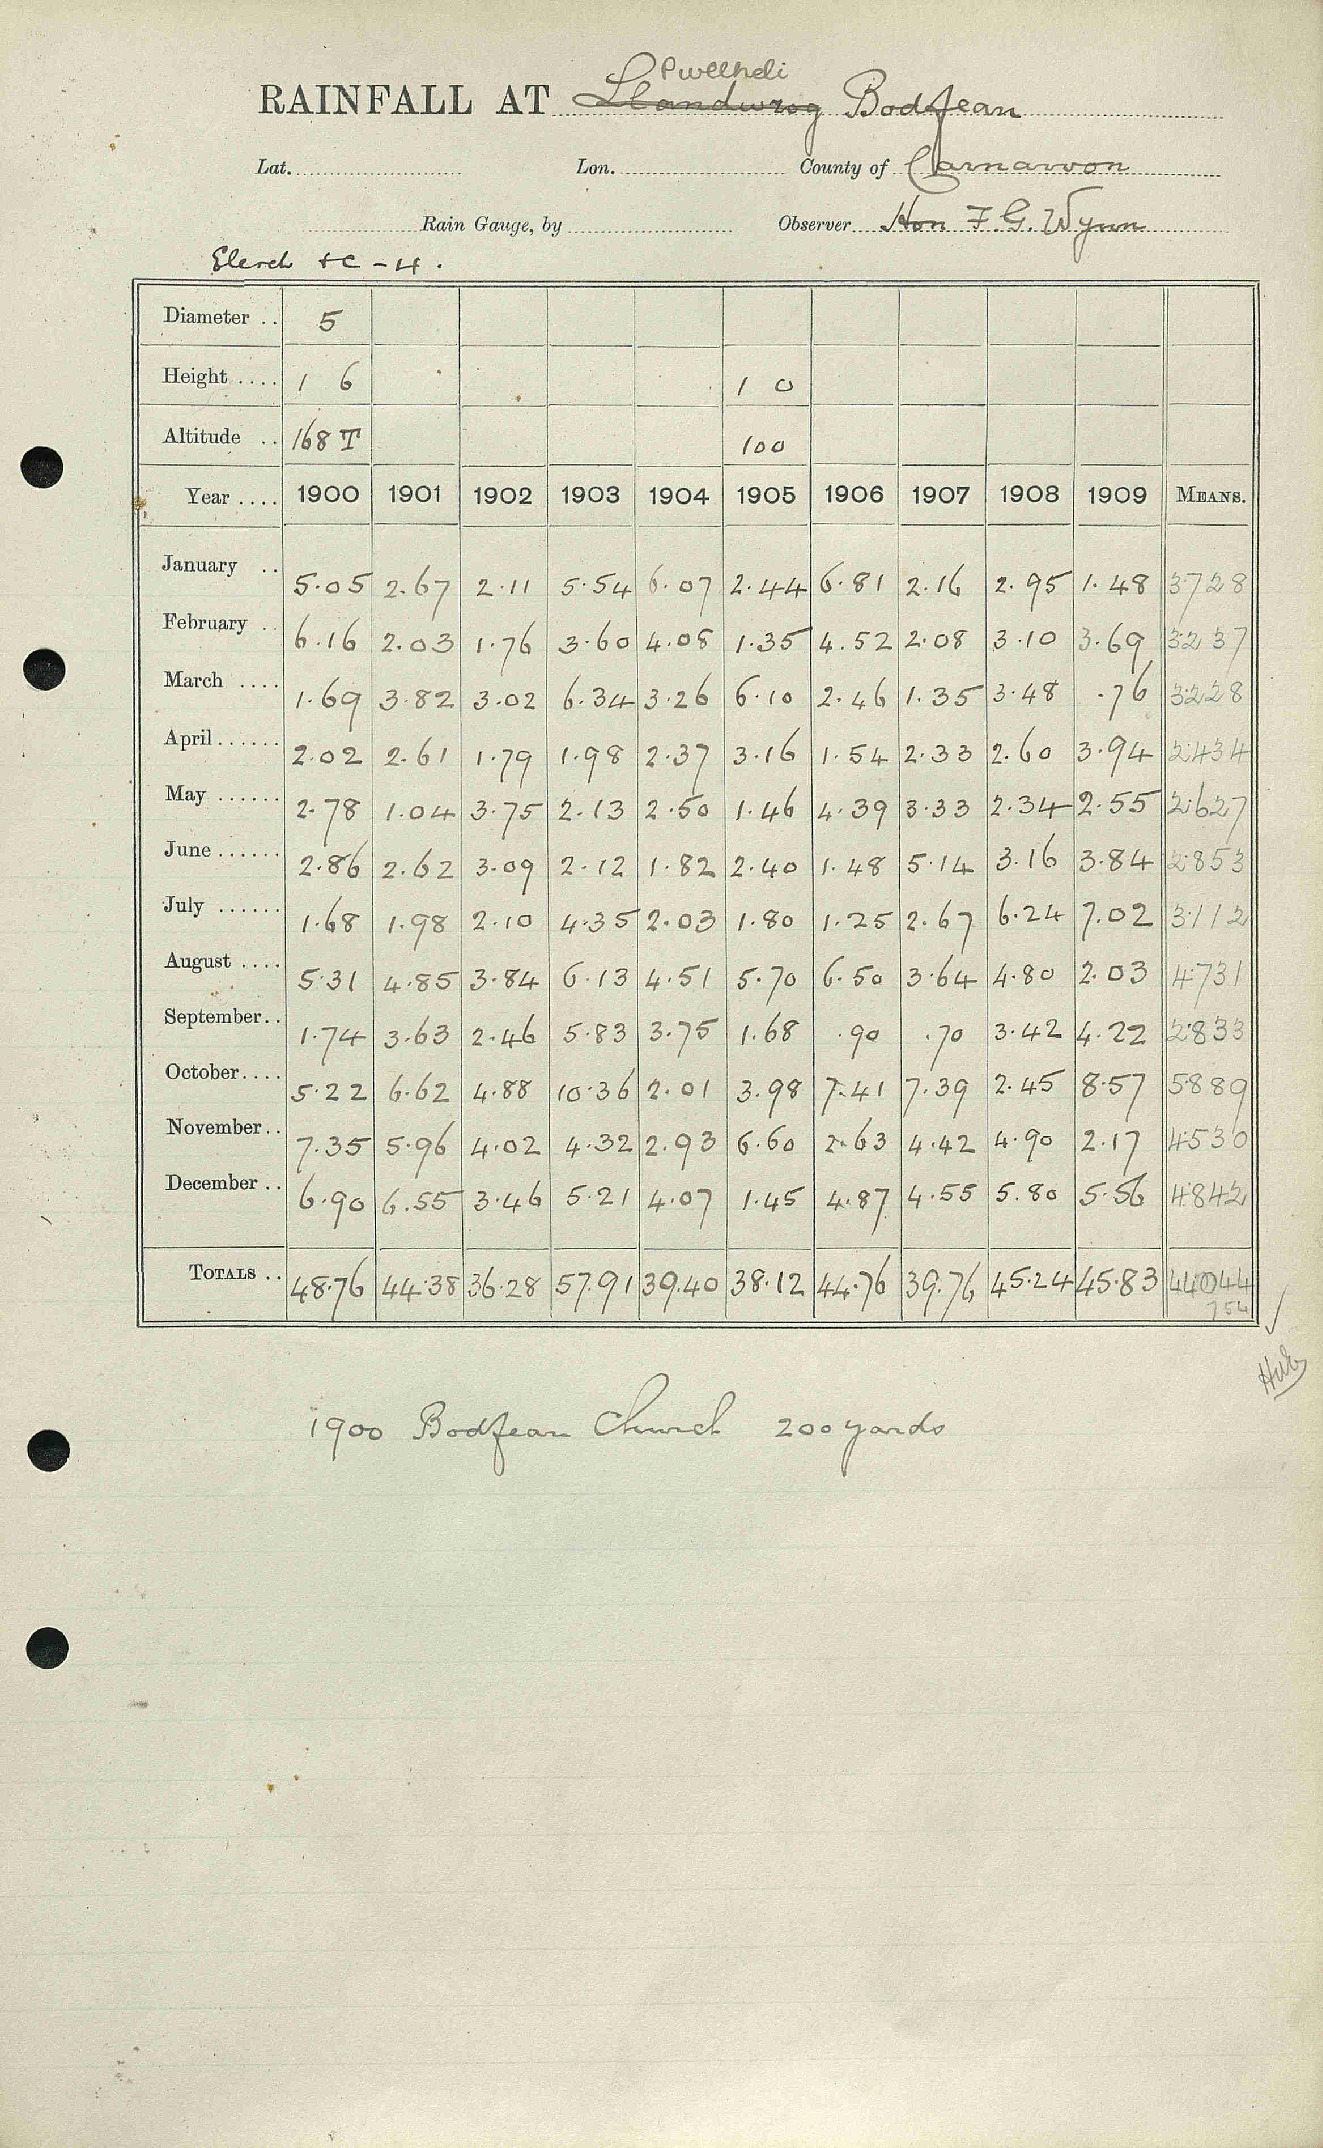 Pwllheli
RAINFALL AT Llandwrog Bodfean
Lat. Lon. County of Carnarvon
Rain Gauge, by Observer Hon F. G. Wynn
Diameter .. 5
Height .... 1 6 1 0
Altitude .. 168 T 100
Year .... 1900 1901 1902 1903 1904 1905 1906 1907 1908 1909 MEANS.
January .. 5.05 2.67 2.11 5.54 6.07 2.44 6.81 2.16 2.95 1.48 3728
February .. 6.16 2.03 1.76 3.60 4.08 1.35 4.52 2.08 3.10 3.69 3237
March .... 1.69 3.82 3.02 6.34 3.26 6.10 2.46 1.35 3.48 .76 3228
April ...... 2.02 2.61 1.79 1.98 2.37 3.16 1.54 2.33 2.60 3.94 2434
May ...... 2.78 1.04 3.75 2.13 2.50 1.46 4.39 3.33 2.34 2.55 2627
June ...... 2.86 2.62 3.09 2.12 1.82 2.40 1.48 5.14 3.16 3.84 2853
July ...... 1.68 1.98 2.10 4.35 2.03 1.80 1.25 2.67 6.24 7.02 3112
August .... 5.31 4.85 3.84 6.13 4.51 5.70 6.50 3.64 4.80 2.03 4731
September .. 1.74 3.63 2.46 5.83 3.75 1.68 .90 .70 3.42 4.22 2833
October .... 5.22 6.62 4.88 10.36 2.01 3.98 7.41 7.39 2.45 8.57 5889
November .. 7.35 5.96 4.02 4.32 2.93 6.60 2.63 4.42 4.90 2.17 4530
December .. 6.90 6.55 3.46 5.21 4.07 1.45 4.87 4.55 5.80 5.56 4842
TOTALS .. 48.76 44.38 36.28 57.91 39.40 38.12 44.76 39.76 45.24 45.83 44044
1900 Bodfean Church 200 yards